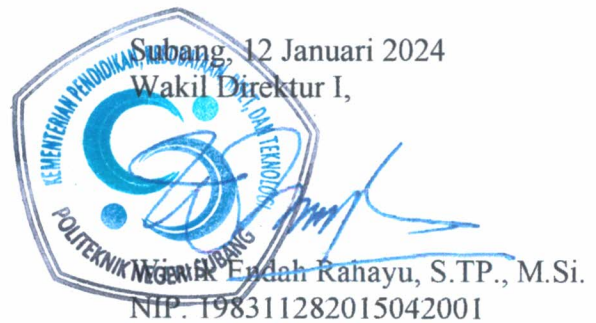 Subang, 12 Januari 2024
Wakil Direktur I,
KEMENTERIAN PENDIDIKAN, KEBUDAYAAN, RISET, DAN TEKNOLOGI
POLITEKNIK NEGERI SUBANG
Wiwik Endah Rahayu, S.TP., M.Si.
NIP. 198311282015042001